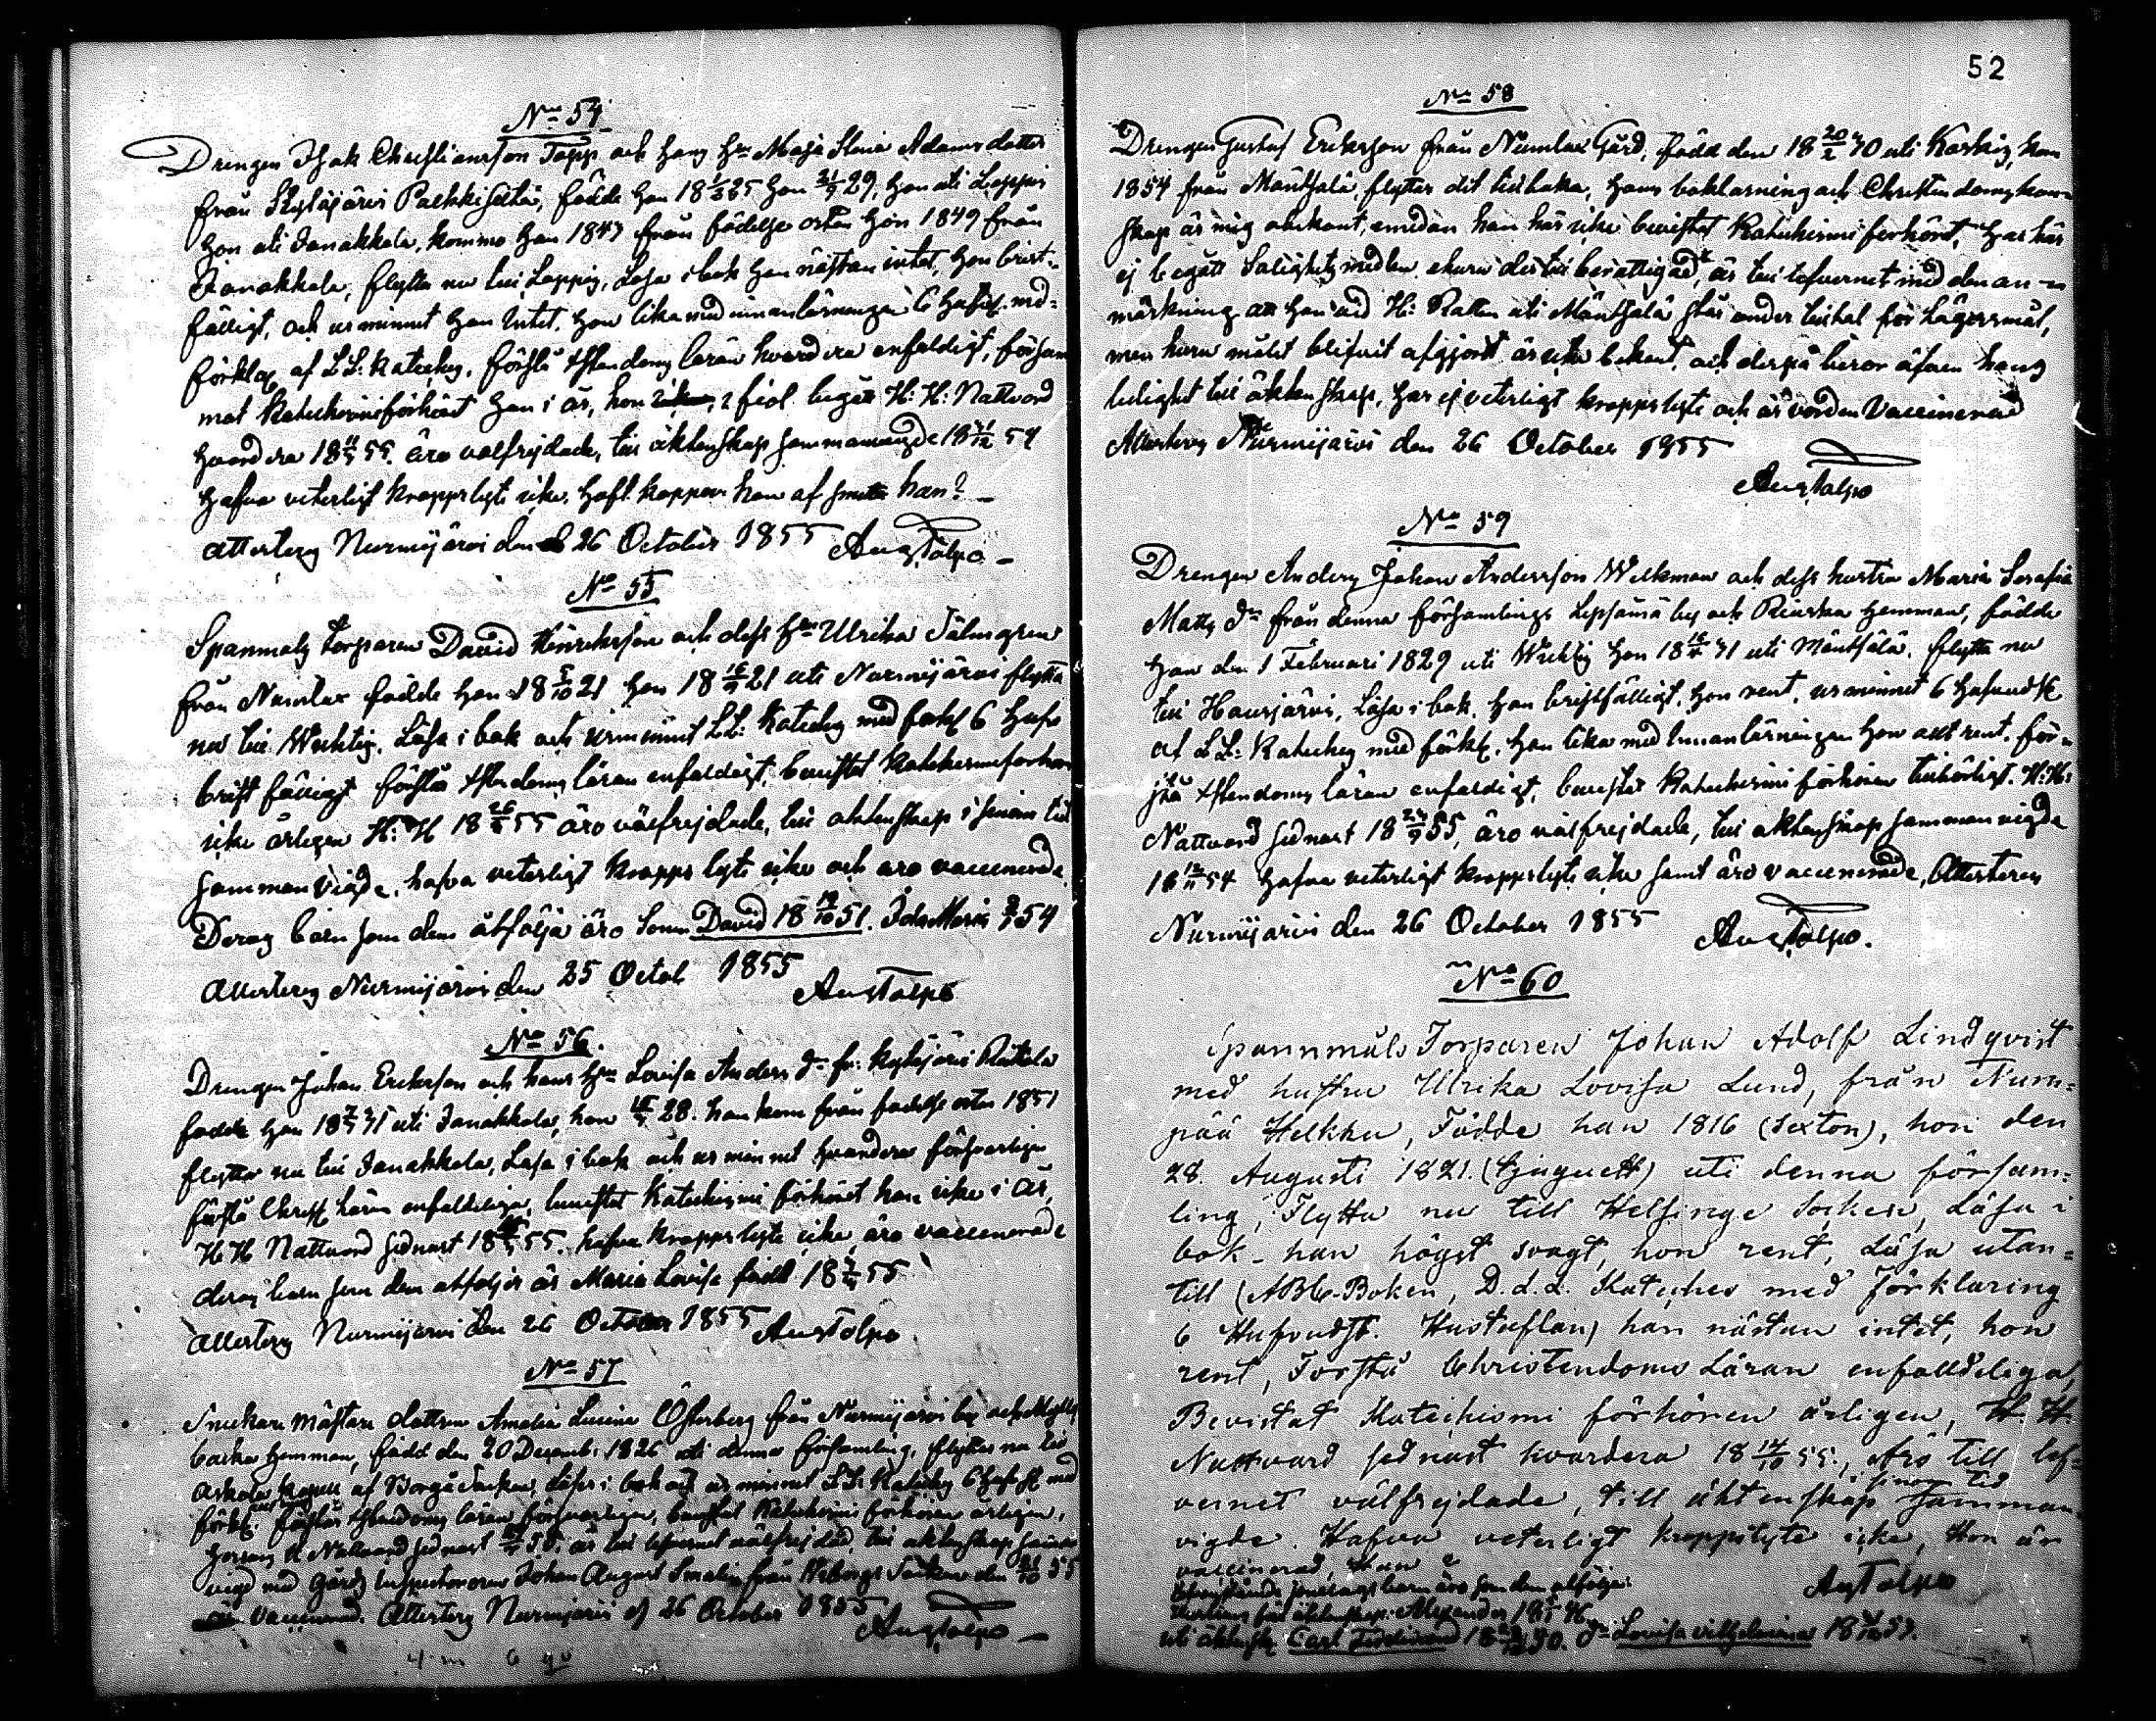 No 54
Drengen Isak Christiansson Tapp och hans Hu Maja Stina Adamsdotter
från Kytäjärvi Palkkisilta, födde han 18 1/3 25 hon 21/9 29, han uti Loppis
hon uti Janakkala, kommo han 1847 från födelse orten hon 1849 från
Janakkala, flytta nu till Loppis, Läsa i bok han nästan intet, hon brist-
fälligt, och ur minnet han Intet, hon lika med innanläsningen 6 Hufst. med
förklg af L L: Kateches, förstå Xstendoms läran hvardera enfaldigt, försum
mat Katechismiförhöret han i år, hon 2 fiol. begått H: H: Nattvard
hvardera 18 55. äro välfrejdade, till äktenskap sammanvigde 18 31/12 54
Hafva veterligt kroppslyte icke. Haft koppor hon af smitta han? –
Attesteras Nurmijärvi den 26 October 1855 Aug Talpo –
No 55
Spanmåls torparen David Henriksson och dess Hu Ulrika Tälmgren
från Numlax födde han 18 5/10 21 hon 18 16/9 21 uti Nurmijärvi flytta
nu till Wichtis. Läsa i bok och ur minnet L L: Kateches med förkl 6 Hufst
brist fälligt förstå Xstendoms läran enfaldigt, bevistat Katechismiförhören
icke årligen H: H 18 55 äro välfrejdade, till äktenskap i sinom tid
sammanvigde, hafva veterligt kropps lyte icke och äro vaccinerade.
Deras barn som dem åtfölja äro Sonen David 18 19/10 51. Ida Maria 54
Attesteras Nurmijärvi den 25 Octob 1855 Aug Talpo
No 56.
Drengen Johan Eriksson och hans Hu Lovisa Anders dr fr: Kytäjärvi
födde han 18 31 uti Janakkala, hon 28. han kom från födelse orten 1851
flytta nu till Janakkala, Läsa i bok och ur minnet hvardera försvarligen
förstå Christ läran enfaldeligen, bevistat Katechismi förhöret han icke i år,
H H Nattvard sednast 18 55. hafva kroppslyte icke äro vaccinerade
deras barn som dem åtföljer är Maria Lovisa född 18 55
Attesteras Nurmijärvi den 26 October 1855 Aug Talpo
No 57
Snickare Mästare dottren Amalia Lucina Österberg från Nurmijärvi by och Mylly
backa Hemman, född den 20 December 1826 uti denna Församling, flyttar nu till
Askola Kapell af Borgå Socken, läser i bok och ur minnet L L: Kateches 6 Hufst med
förkl. förstår Xstendoms läran försvarligen, bevistat Katechismi förhören årligen,
H Nattvard sednast 55. är till lefvernet välfrejdad, till äktenskap
vigd med Gårds Inspectoren Johan August Smalin från Wiborgs Socken den 21/10 55
vaccinerad. Attesteras Nurmijärvi d 26 October 1855 Aug Talpo –
52
No 58
Drengen Gustaf Eriksson från Numlax Gård, född den 18 20/2 30 uti Karkis, kom
1854 från Mäntsälä, flytter dit tillbaka, hans bokläsning och Christendomskun-
skap är mig obekant, emedan han här icke bevistat Katechismi förhöret, har här
ej begått Salighetsmedlen, ehuru dertill berättigad, är till lefvernet med den an-
märkning att han vid H: Rätten uti Mäntsälä står under tilltal för Lägersmål,
men huru målet blifvit afgjordt är icke bekant, och derpå beror äfven hans
ledighet till äktenskap, har ej veterligt kroppslyte och är vorden Vaccinerad
Attesteras Nurmijärvi den 26 October 1855
Aug Talpo
No 59
Drengen Anders Johan Andersson Welkman och dess hustru Maria Serafia
Matts dr från denna församlings Lepsämä by och Hemman, födde
han den 1 Februari 1829 uti Wichtis hon 18 31 uti Mäntsälä, flytta nu
till Hausjärvi, Läsa i bok, han bristfälligt, hon rent, ur minnet 6 Hufvudst
af L L: Kateches med förkl. han lika med Innanläsningen hon allt rent, för-
stå Xstendoms läran enfaldigt, bevistat Katechismi förhören tillbörligt. H: H:
Nattvard sednast 18 24/9 55, äro välfrejdade, till äktenskap sammanvigde
18 54 Hafva veterligt kroppslyte icke samt äro vaccinerade, Attesteras
Nurmijärvi den 26 October 1855
Aug Talpo.
No 60
Spannmåls Torparen Johan Adolf Lindqvist
med hustru Ulrika Lovisa Lund, från Num-
pää Helkku, Födde han 1816 (Sexton), hon den
28. Augusti 1821. (tjuguett) uti denna försam-
ling, Flytta nu till Helsinge Socken, Läsa i
bok – han högst svagt, hon rent, Läsa utan-
till (ABC-Boken, D. L. L. Kateches med Förklaring
6 Hufvudst. Hustaflan) han nästan intet, hon
rent, Förstå Christendoms Läran enfalldeliga,
Bevistat Katechismi förhören årligen, H. H.
Nattvard sednast hvardera 18 14/10 55., Äro till lef-
vernet välfrejdade, till äktenskap i sinom tid samman-
vigde. Hafva veterligt kroppslyte icke, Hon är
vaccinerad, Han e
barn äro som dem åtfölja:
äktenskap Alexander 18 46 Aug Talpo
uti äktensk. Carl Ferdinand 18 50. dr Lovisa Vilhelmina 18 53.